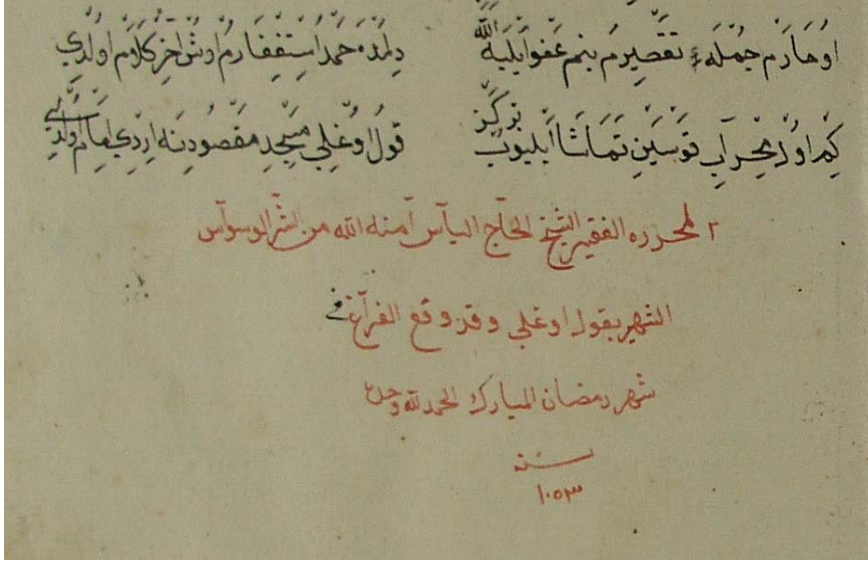 اوُمارَم جُمْلَهءِ تَقْصِيرِمُ بَنِم عَفْو اَيْلَيَه اللّٰه دِلِمْدَه حَمْد اسْتِغْفَارَم اوُش اخِر كَلاَمُم اوُلدِي
كِم اوُلْ مِحْرَابِ قَوسَيْنِ تَمَاشَا اَيْلَيوُبْ قُول اوُغْلِي مَسْجِدِ مَقْصُودِينَه اِرْدِي اِمَام اوُلدِي
لمحرره الفقير الشيخ الحاج الياس آمنه الله من الشر الوسواس
الشهير بقول اوغلي و قد وقع الفراغ في
شهر رمضان المبارك الحمد لله وحده
سنه
١٠٥٣